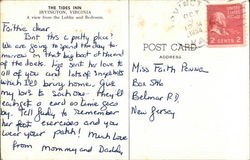 THE TIDES INN
IRVINGTON, VIRGINIA
A view from the Lobby and Bedroom.
Faithie dear
Isn't this a pretty place?
We are going to spend the day to-
morrow on that big boat at the end
of the dock. Gigi sent her love to
all of you and lots of
which I'll bring home. Give
my love to Sachow. They'll
each get a card as time goes
by. Tell Judy to remember
her foot exercises and you
wear your patch! Much love
from Mommy and Daddy
POST CARD
ADDRESS
Miss Faith
Box 546
Belmar R.D.
New Jersey
2 CENTS 2